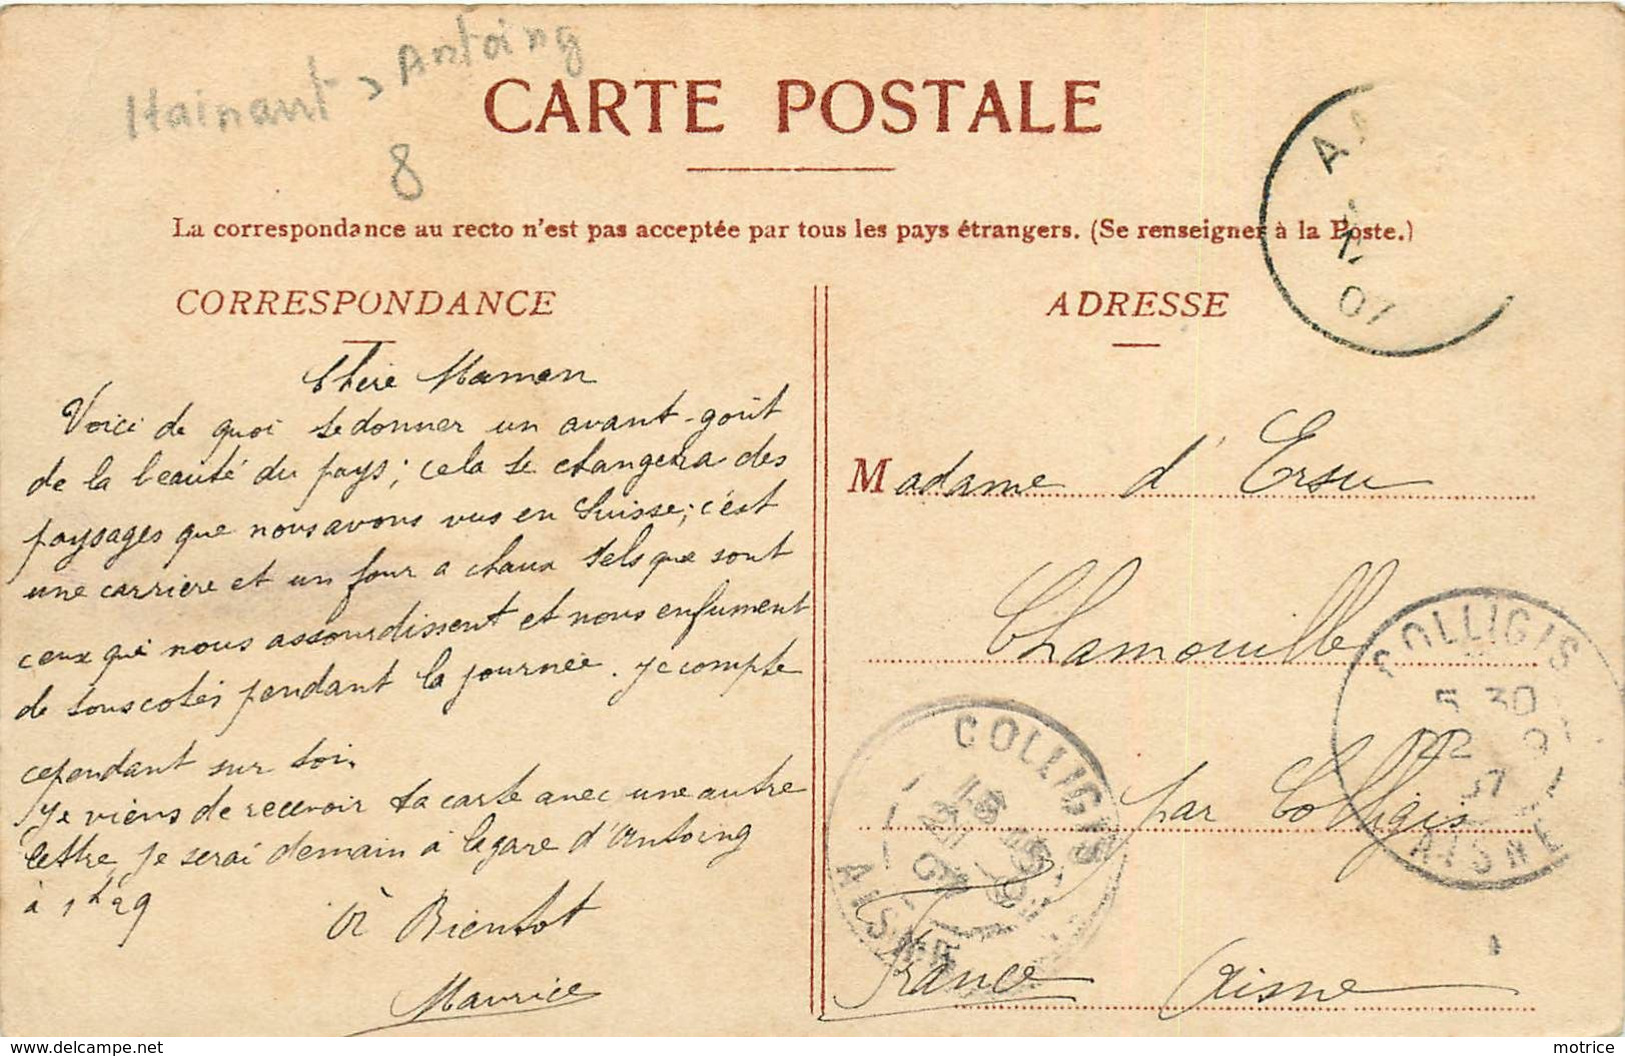 Hainaut > Antoing
8
CARTE POSTALE
La correspondance au recto n'est pas acceptée par tous les pays étrangers. (Se renseigner à la Poste.)
CORRESPONDANCE
Chère Maman
Voici de quoi te donner un avant-goût
de la beauté du pays; cela te changera des
paysages que nous avons vus en Suisse; c'est
une carrière et un four a chaux tels que sont
ceux qui nous assourdissent et nous enfument
de tous cotés pendant la journée. Je compte
cependant sur toi.
Je viens de recevoir ta carte avec une autre
lettre, je serai demain à la gare d'Antoing
à 1h29
A Bientot
Maurice
ADRESSE
Madame d'Ersu
Chamouille
par Colligis
France Aisne
07
COLLIGIS
5 30
22
AISNE
COLLIGIS
AISNE
motrice